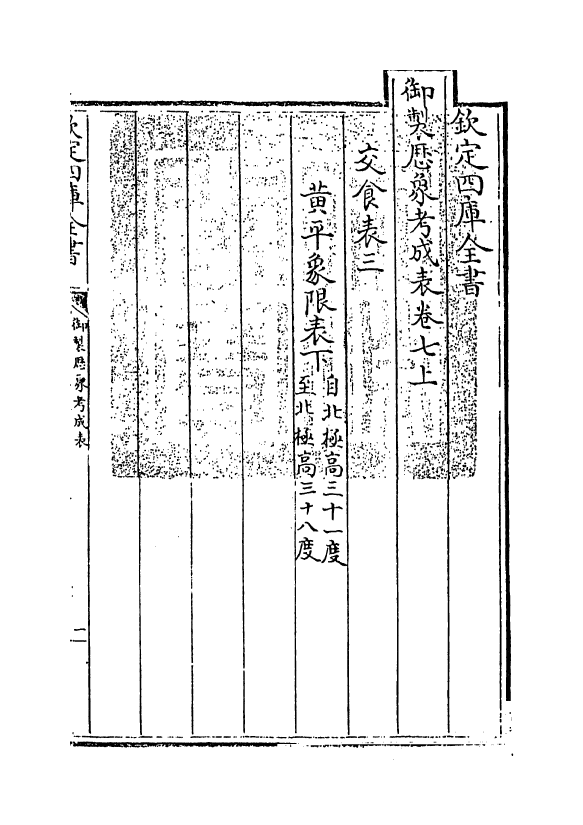 欽定四庫全書
御製厯象考成表卷七上
交食表三
黄平象限表下
自北極高三十一度
至北極高三十八度
欽定四庫全書
御製厯象考成表